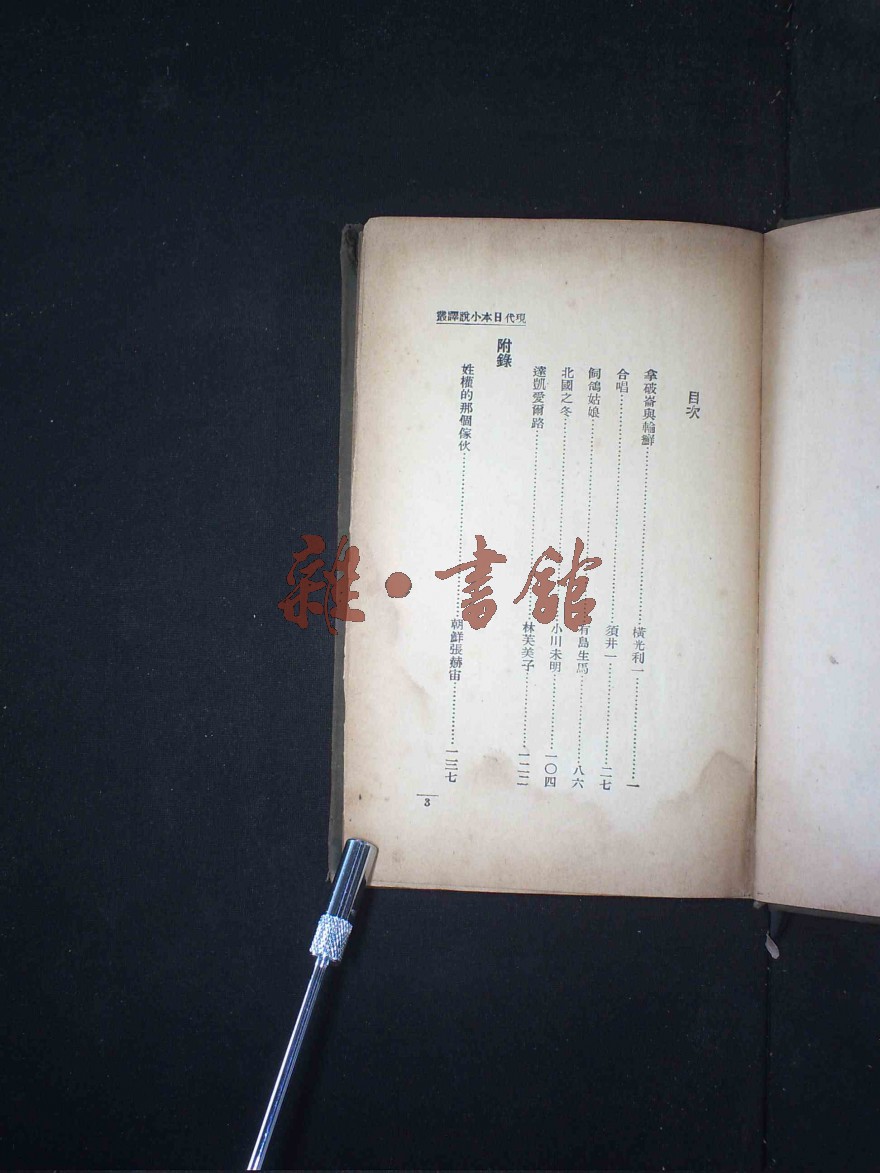 目次
拿破崙與輪癬……橫光利一……一
合唱……須井一……二七
飼鴿姑娘……有島生馬……八六
北國之冬……小川未明……一〇四
達凱愛爾路……林芙美子……一二二
附錄
姓權的那個傢伙……朝鮮張赫宙……一三七
現代日本小說譯叢
3
雜·書館